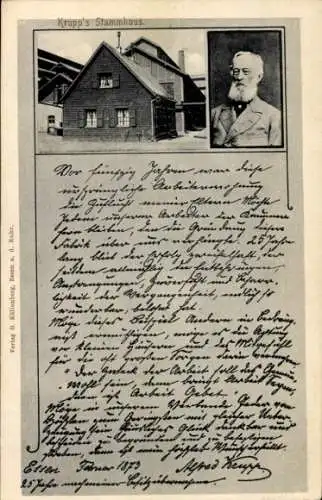 Krupp's Stammhaus.
Vor fünfzig Jahren war diese
ursprüngliche Arbeiterwohnung
die Zuflucht meiner Eltern. Möchte
Jedem unserer Arbeiter der Kummer
fern bleiben, den die Gründung dieser
Fabrik über uns verhängte. 25 Jahre
lang blieb der Erfolg zweifelhaft, der
seitdem allmählig die Entbehrungen,
Anstrengungen, Zuversicht und Beharr-
lichkeit der Vergangenheit endlich so
wunderbar belohnt hat.
Möge dieses Beispiel Andere in Bedräng-
niß ermuthigen, möge es die Achtung
vor kleinen Häusern und das Mitgefühl
für die oft großen Sorgen darin vermehren.
"Der Zweck der Arbeit soll das Gemein-
wohl sein, dann bringt Arbeit Segen,
dann ist Arbeit Gebet.
Möge in unserem Verbande Jeder vom
Höchsten zum Geringsten mit gleicher Ueber-
zeugung sein häusliches Glück dankbar und
bescheiden zu begründen und zu befestigen
streben; dann ist mein höchster Wunsch erfüllt.
Essen Februar 1873
Alfred Krupp.
25 Jahre nach meiner Besitzübernahme.